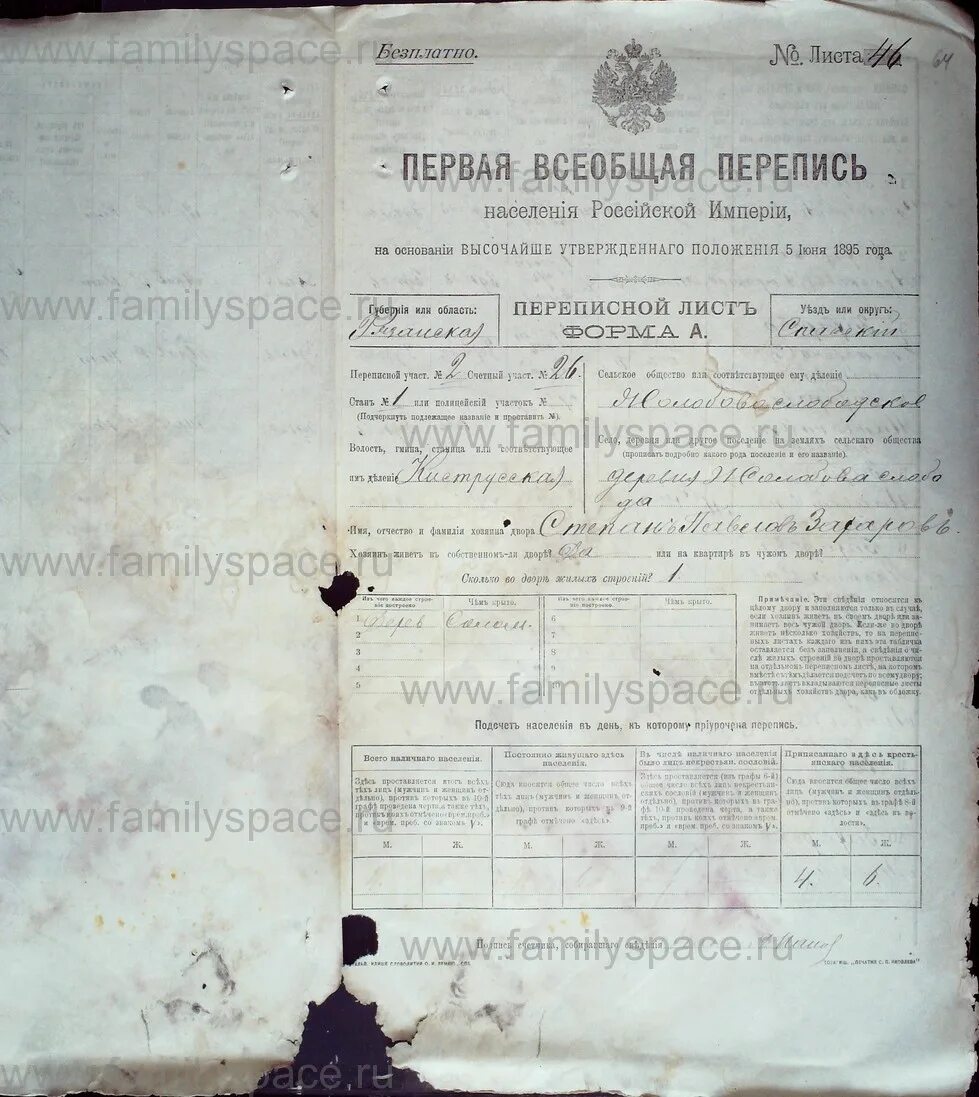 Безплатно.
№ Листа 46
64
ПЕРВАЯ ВСЕОБЩАЯ ПЕРЕПИСЬ
населенія Россійской Имперіи,
на основаніи ВЫСОЧАЙШЕ УТВЕРЖДЕННАГО ПОЛОЖЕНІЯ 5 Іюня 1895 года.
Губернія или область:
Рязанская
ПЕРЕПИСНОЙ ЛИСТЪ
ФОРМА А.
Уѣздъ или округъ:
Спасскій
Переписной участ. № 2 Счетный участ. № 26.
Станъ № 1 или полицейскій участокъ №
(Подчеркнуть подлежащее названіе и проставить №).
Волость, гмина, станица или соотвѣтствующее
имъ дѣленіе Киструсская
Сельское общество или соотвѣтствующее ему дѣленіе
Жолобовослободское
Село, деревня или другое поселеніе на земляхъ сельскаго общества
(прописать подробно какого рода поселеніе и его названіе).
деревня Жолобова слобо
да
Имя, отчество и фамилія хозяина двора Степанъ Павловъ Захаровъ.
Хозяинъ живетъ въ собственномъ-ли дворѣ? Да или на квартирѣ въ чужомъ дворѣ?
Сколько во дворѣ жилыхъ строеній? 1
Изъ чего каждое строе-
ніе построено.
Чѣмъ крыто.
Изъ чего каждое строе-
ніе построено.
Чѣмъ крыто.
1 Дерев Солом. 6
2 7
3 8
4 9
5 10
Примѣчаніе. Эти свѣдѣнія относятся къ
цѣлому двору и заполняются только въ случаѣ,
если хозяинъ живетъ въ своемъ дворѣ или за-
нимаетъ весь чужой дворъ. Если-же во дворѣ
живетъ нѣсколько хозяйствъ, то на перепис-
ныхъ листахъ каждаго изъ нихъ эта табличка
оставляется безъ заполненія, а свѣдѣнія о чи-
слѣ жилыхъ строеній во дворѣ проставляются
на отдѣльномъ переписномъ листѣ, на которомъ
вмѣстѣ съ тѣмъ дѣлается подсчетъ по всему двору;
въ этотъ листъ вкладываются переписные листы
отдѣльныхъ хозяйствъ двора, какъ въ обложку.
Подсчетъ населенія въ день, къ которому пріурочена перепись.
Всего наличнаго населенія.
Здѣсь проставляется итогъ всѣхъ
тѣхъ лицъ (мужчинъ и женщинъ от-
дѣльно), противъ которыхъ въ 10-й
графѣ проведена черта, а также тѣхъ,
противъ коихъ отмѣчено «врем. проб.»
и «врем. проб. со знакомъ V».
Постоянно живущаго здѣсь
населенія.
Сюда вносится общее число всѣхъ
тѣхъ лицъ (мужчинъ и женщинъ от-
дѣльно), противъ которыхъ въ 9-й
графѣ отмѣчено «здѣсь».
Въ числѣ наличнаго населенія
было лицъ некрестьян. сословій.
Здѣсь проставляется (изъ графы 6-й)
общее число всѣхъ лицъ некрестьян-
скихъ сословій (мужчинъ и женщинъ
отдѣльно), противъ которыхъ въ гра-
фѣ 10-й проведена черта, а также
тѣхъ, противъ коихъ отмѣчено «врем.
проб.» и «врем. проб. со знакомъ V».
Приписаннаго здѣсь кресть-
янскаго населенія.
Сюда вносится общее число всѣхъ
лицъ (мужчинъ и женщинъ отдѣль-
но), противъ которыхъ въ графѣ 8-й
отмѣчено «здѣсь» и «здѣсь въ во-
лости».
М. Ж. М. Ж. М. Ж. М. Ж.
4. 6.
Подпись счетчика, собиравшаго свѣдѣнія
www.familyspace.ru
www.familyspace.ru
www.familyspace.ru
www.familyspace.ru
www.familyspace.ru
www.familyspace.ru
www.familyspace.ru
www.familyspace.ru
www.familyspace.ru
www.familyspace.ru